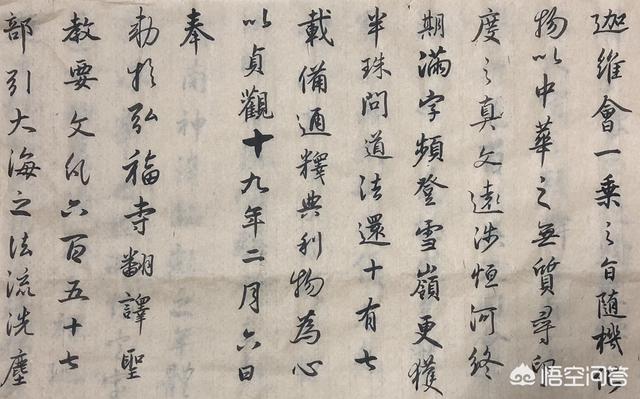 迦維會一乘之旨隨機化
物以中華之無質尋印
度之真文遠涉恒河終
期滿字頻登雪嶺更獲
半珠問道法還十有七
載備通釋典利物為心
以貞觀十九年二月六日
奉
勅於弘福寺翻譯聖
教要文凡六百五十七
部引大海之法流洗塵
悟空问答